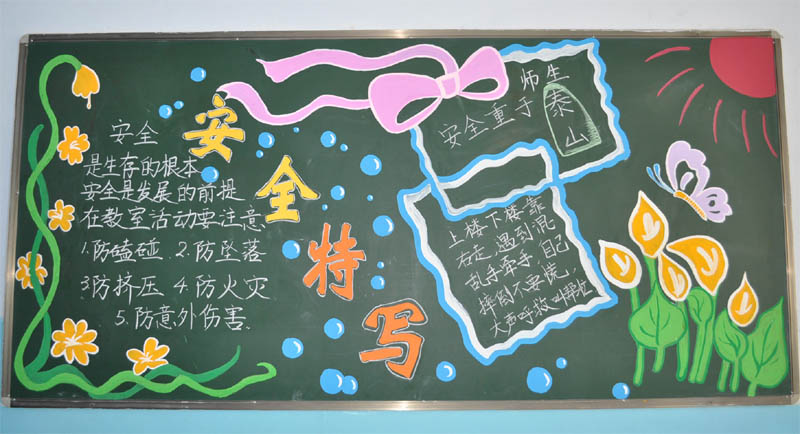 安全
是生存的根本
安全是发展的前提
在教室活动要注意
1.防磕碰 2.防坠落
3防挤压 4.防火灾
5.防意外伤害.
安全特写
师生
安全重于泰山
上楼下楼靠
右走,遇到混
乱手牵手,自己
摔倒不要慌,
大声呼救叫帮忙